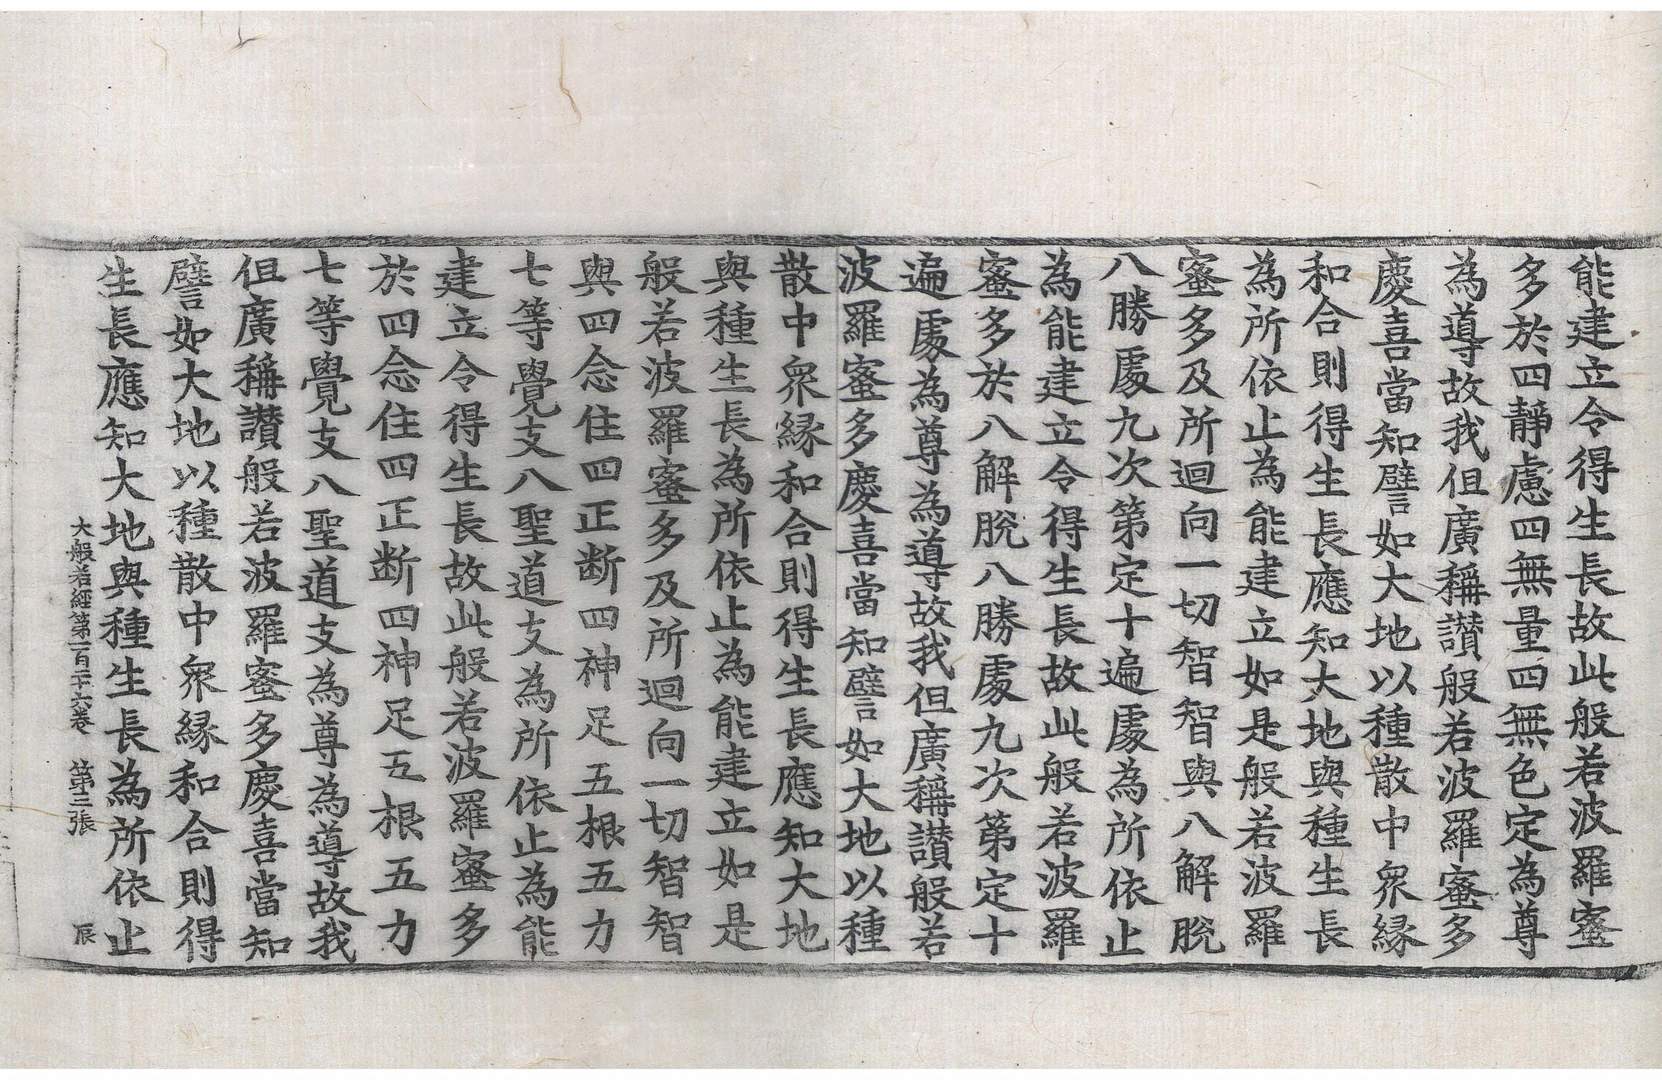 能建立令得生長故此般若波羅蜜
多於四靜慮四無量四無色定為尊
為導故我但廣稱讚般若波羅蜜多
慶喜當知譬如大地以種散中眾緣
和合則得生長應知大地與種生長
為所依止為能建立如是般若波羅
蜜多及所迴向一切智智與八解脫
八勝處九次第定十遍處為所依止
為能建立令得生長故此般若波羅
蜜多於八解脫八勝處九次第定十
遍處為尊為導故我但廣稱讚般若
波羅蜜多慶喜當知譬如大地以種
散中眾緣和合則得生長應知大地
與種生長為所依止為能建立如是
般若波羅蜜多及所迴向一切智智
與四念住四正斷四神足五根五力
七等覺支八聖道支為所依止為能
建立令得生長故此般若波羅蜜多
於四念住四正断四神足五根五力
七等覺支八聖道支為尊為導故我
但廣稱讚般若波羅蜜多慶喜當知
譬如大地以種散中眾緣和合則得
生長應知大地與種生長為所依止
大般若經第一百二十六卷 第三張 辰